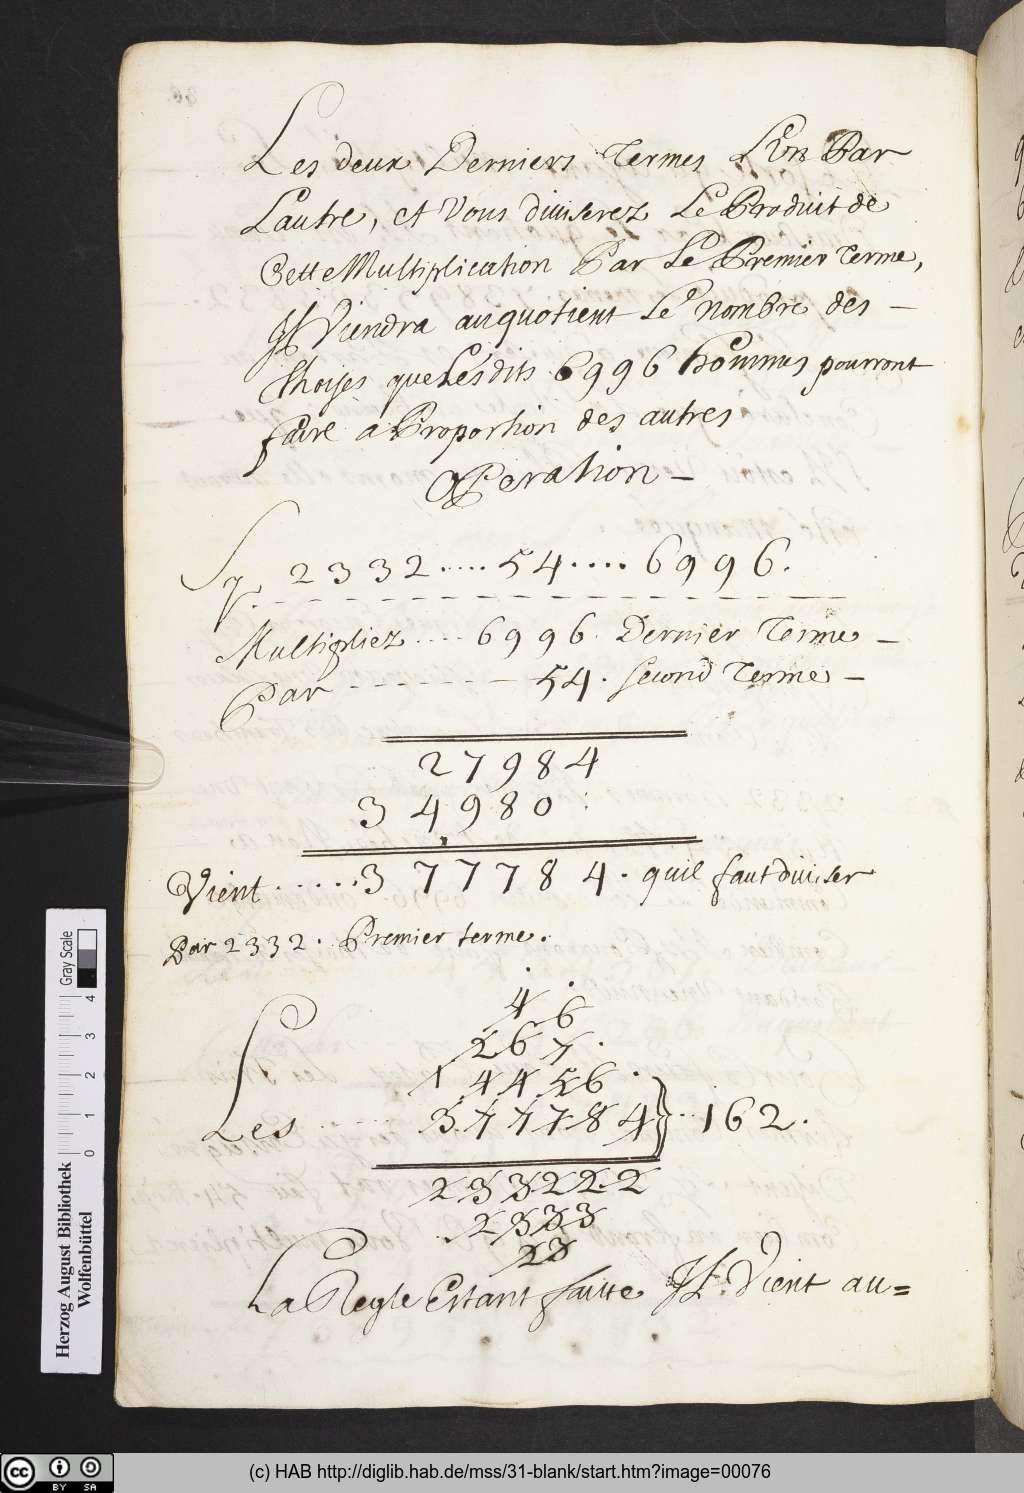 Les deux Derniers Termes L'un Par
L'autre, et Vous diviserez Le Produit de
Cette Multiplication Par Le Premier Terme,
Il Viendra auquotient Le Nombre des –
thoises que Lesdits 6996 hommes pourront
faire a Proportion des autres
Operation –
Sy. 2332 .... 54 .... 6996.
Multipliez .... 6996. Dernier Terme –
Par - - - - - - 54. Second Terme –
27984
34980
Vient ..... 377784. quil faut diviser
Par 2332. Premier terme.
4 6
267.
1 4456.
Les ... 377784 } .. 162.
233222
2333
23
La Regle Estant faitte Il Vient au=
Herzog August Bibliothek
Wolfenbüttel
0 1 2 3 4
Gray Scale
cc BY SA
(c) HAB http://diglib.hab.de/mss/31-blank/start.htm?image=00076